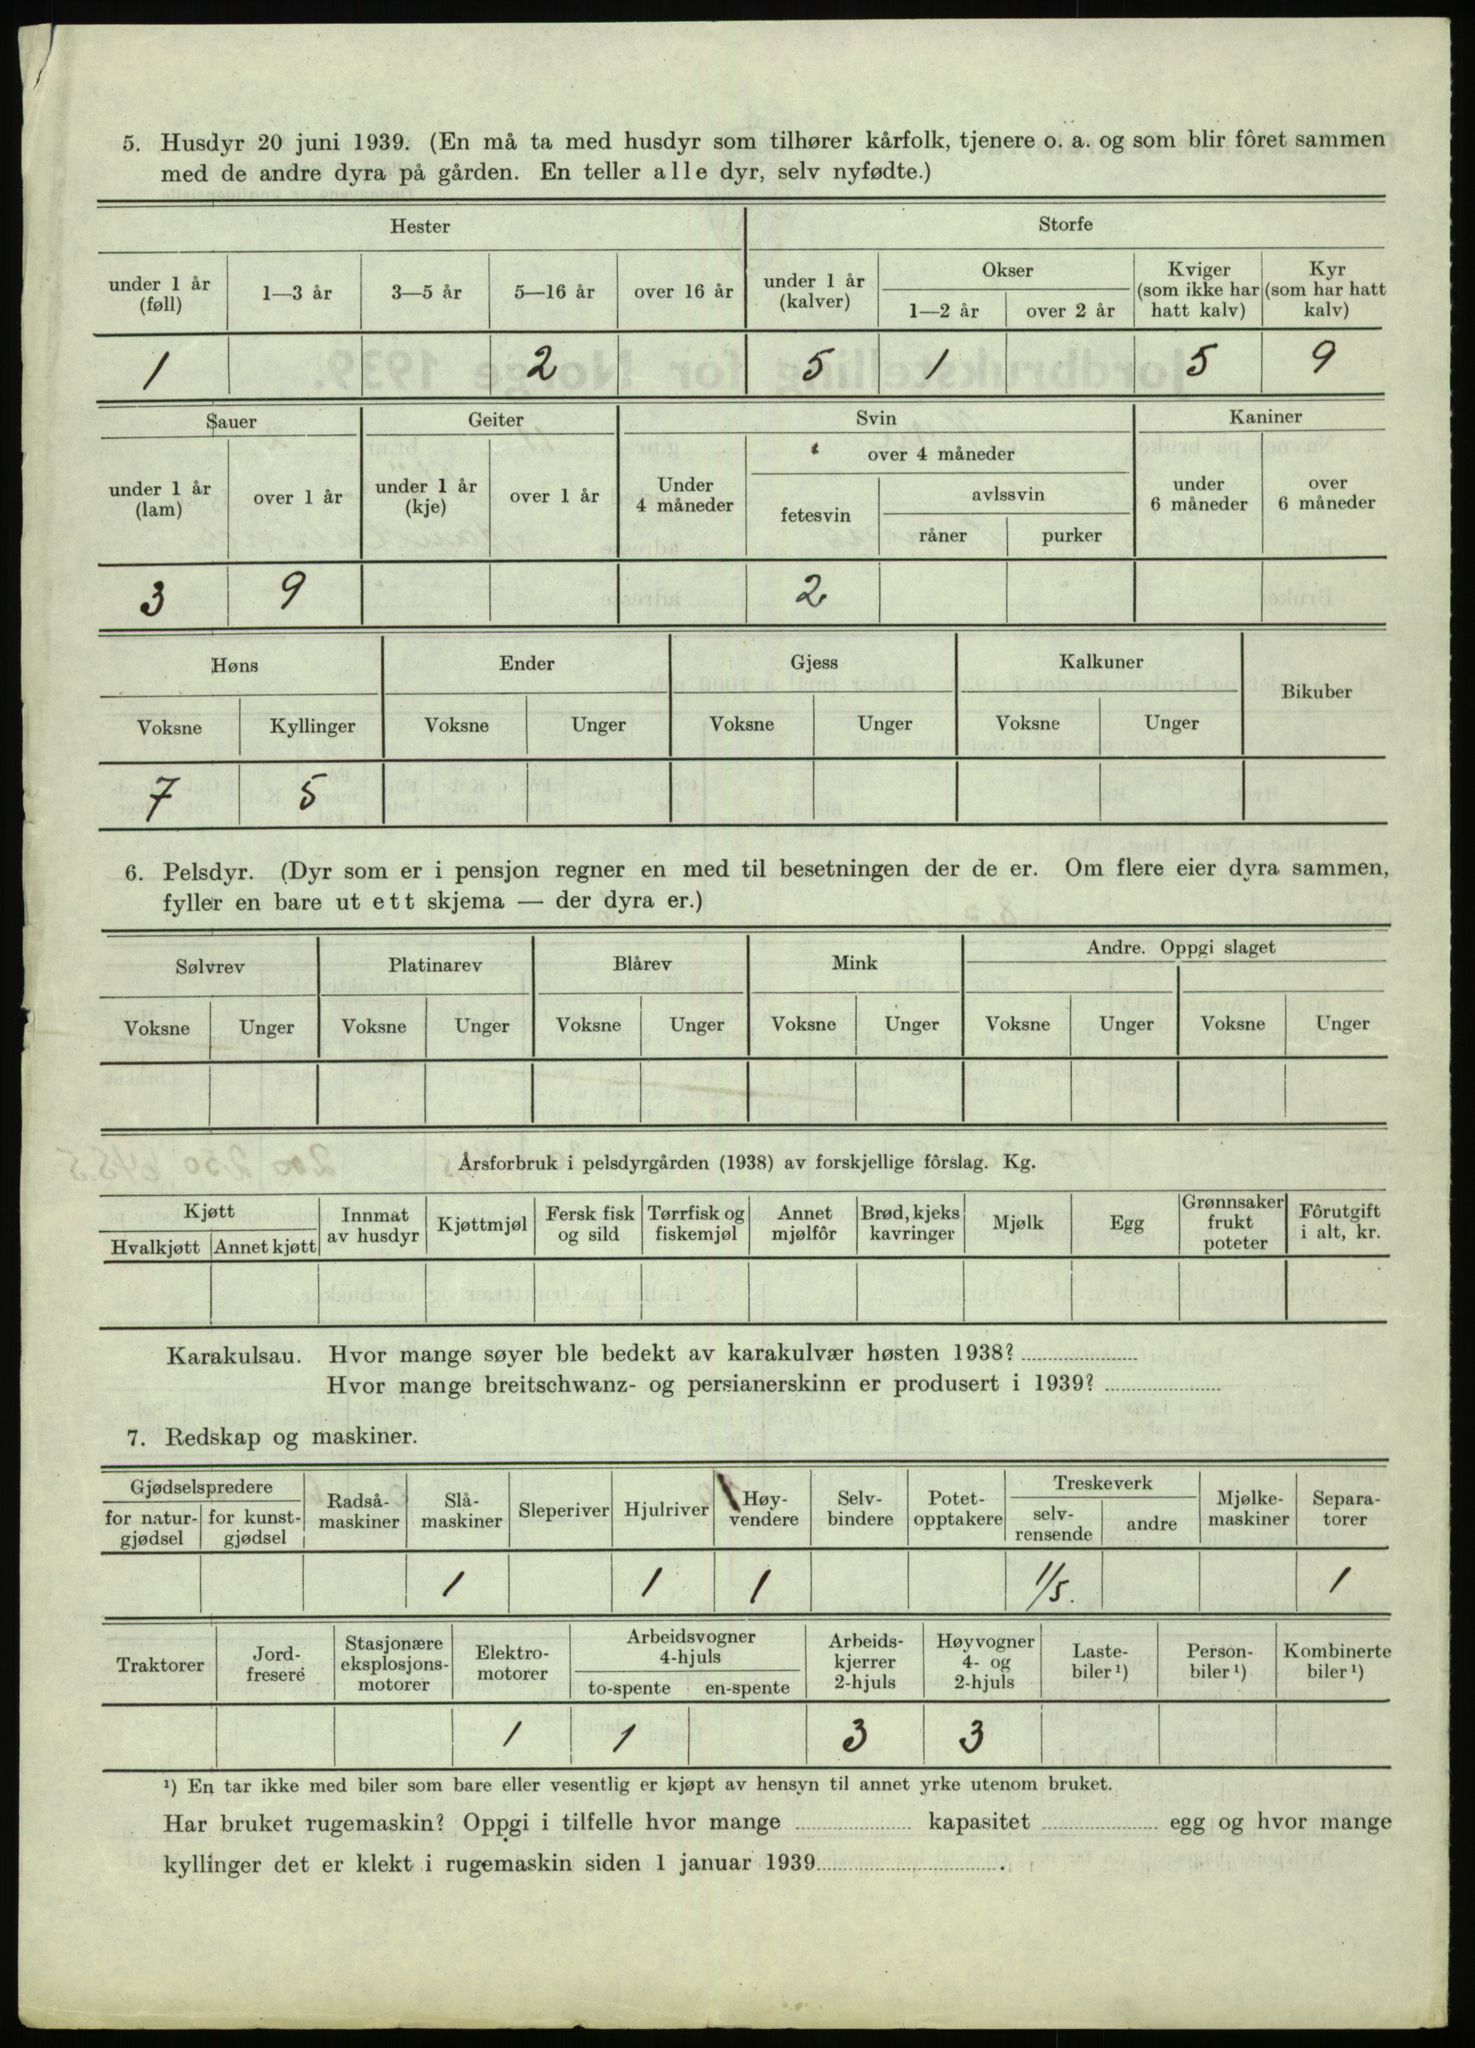 5. Husdyr 20 juni 1939. (En må ta med husdyr som tilhører kårfolk, tjenere o. a. og som blir fôret sammen
med de andre dyra på gården. En teller alle dyr, selv nyfødte.)
Hester Storfe
under 1 år (føll) 1—3 år 3—5 år 5—16 år over 16 år under 1 år (kalver) Okser 1—2 år over 2 år Kviger (som ikke har hatt kalv) Kyr (som har hatt kalv)
1 2 5 1 5 9
Sauer Geiter Svin Kaniner
under 1 år (lam) over 1 år under 1 år (kje) over 1 år Under 4 måneder over 4 måneder fetesvin avlssvin råner purker under 6 måneder over 6 måneder
3 9 2
Høns Ender Gjess Kalkuner Bikuber
Voksne Kyllinger Voksne Unger Voksne Unger Voksne Unger
7 5
6. Pelsdyr. (Dyr som er i pensjon regner en med til besetningen der de er. Om flere eier dyra sammen,
fyller en bare ut ett skjema — der dyra er.)
Sølvrev Platinarev Blårev Mink Andre. Oppgi slaget
Voksne Unger Voksne Unger Voksne Unger Voksne Unger Voksne Unger Voksne Unger
Årsforbruk i pelsdyrgården (1938) av forskjellige fôrslag. Kg.
Kjøtt Hvalkjøtt Annet kjøtt Innmat av husdyr Kjøttmjøl Fersk fisk og sild Tørrfisk og fiskemjøl Annet mjølfôr Brød, kjeks kavringer Mjølk Egg Grønnsaker frukt poteter Fôrutgift i alt, kr.
Karakulsau. Hvor mange søyer ble bedekt av karakulvær høsten 1938?
Hvor mange breitschwanz- og persianerskinn er produsert i 1939?
7. Redskap og maskiner.
Gjødselspredere for natur-gjødsel for kunst-gjødsel Radså-maskiner Slå-maskiner Sleperiver Hjulriver Høy-vendere Selv-bindere Potet-opptakere Treskeverk selv-rensende andre Mjølke-maskiner Separa-torer
1 1 1 1/5. 1
Traktorer Jord-freseré Stasjonære eksplosjons-motorer Elektro-motorer Arbeidsvogner 4-hjuls to-spente en-spente Arbeids-kjerrer 2-hjuls Høyvogner 4- og 2-hjuls Laste-biler ¹) Person-biler ¹) Kombinerte biler ¹)
1 1 3 3
¹) En tar ikke med biler som bare eller vesentlig er kjøpt av hensyn til annet yrke utenom bruket.
Har bruket rugemaskin? Oppgi i tilfelle hvor mange kapasitet egg og hvor mange
kyllinger det er klekt i rugemaskin siden 1 januar 1939